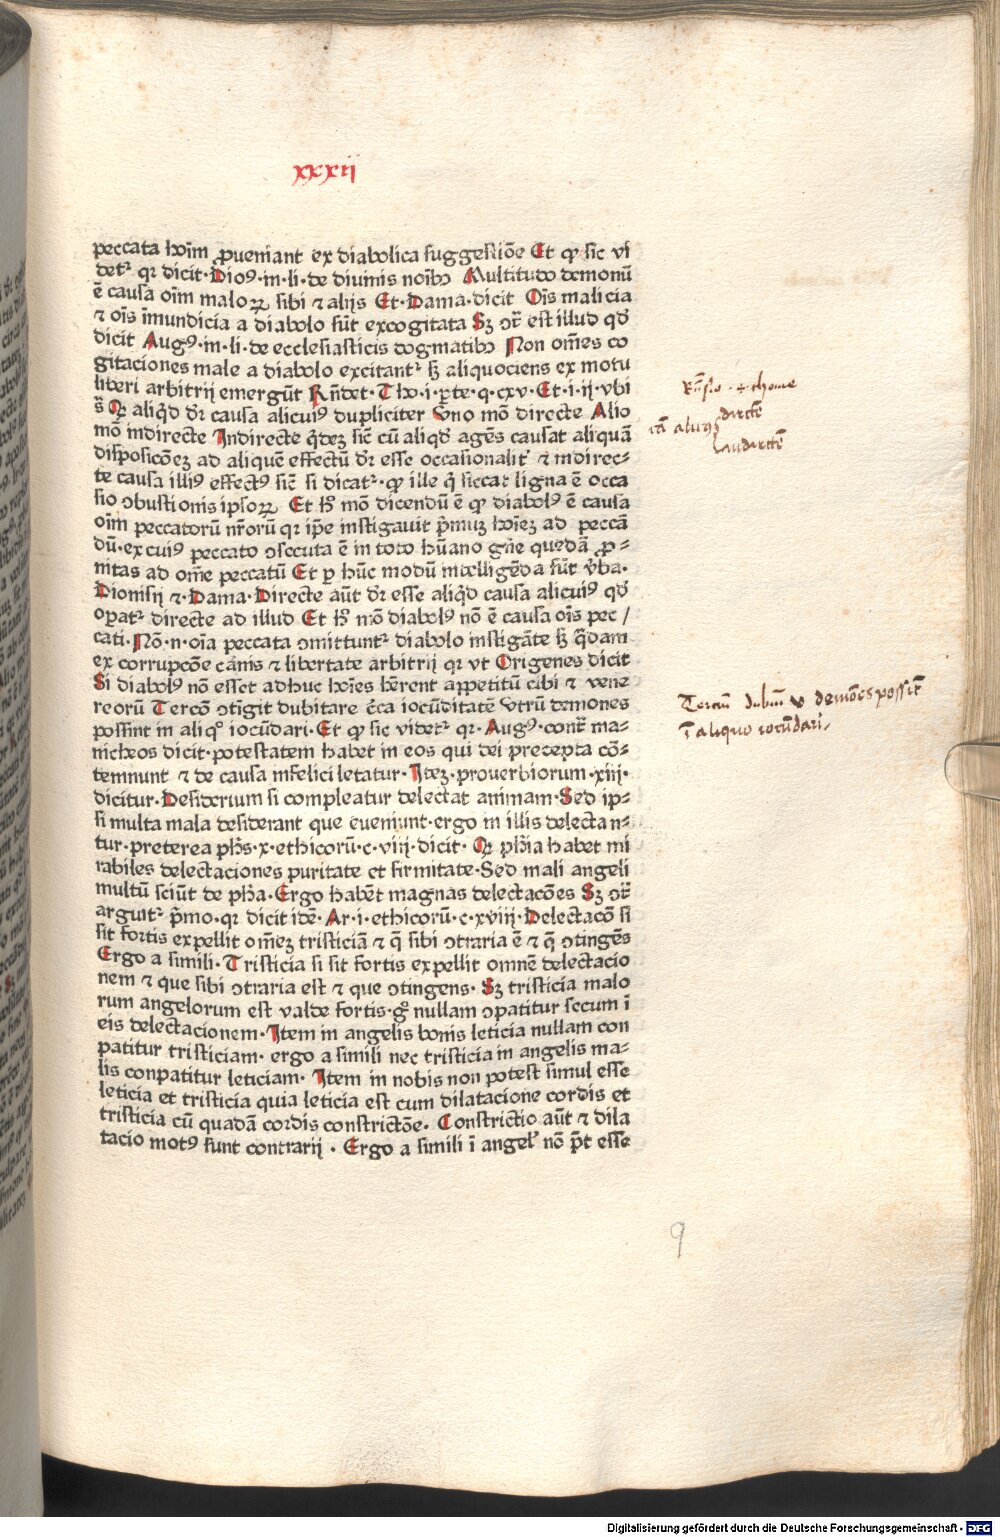 xxxii
peccata hoīm ꝓueniant ex diabolica suggestiōe Et ꝙ sic vi
detᷣ qꝛ dicit·Dioꝰ·in·li·de diuinis noībꝫ Multitudo demonū
ē causa oīm maloꝝ sibi ⁊ alijs Et·Dama·dicit Oīs malicia
⁊ oīs īmundicia a diabolo sūt excogitata Sꝫ ↄ̄t̄ est illud qđ
dicit Augꝰ·in·li·de ecclesiasticis dogmatibꝫ Non om̄es co
gitaciones male a diabolo excitantᷣ sꝫ aliquociens ex motu
liberi arbitrij emergūt Rn̄det·Tho·i·ꝑte·q·cxv·Et·i·ij·vbi
s̄ Qꝛ aliqđ dr̄ causa alicuiꝰ dupliciter Vno mō directe Alio
mō indirecte Indirecte q̄deꝫ sic̄ cū aliqđ agēs causat aliquā
disposicōeꝫ ad aliquē effectū dr̄ esse occasionalit̄ ⁊ indirec⸗
te causa illiꝰ effectꝰ sic̄ si dicatᷣ·ꝙ ille q̄ siccat ligna ē occa
sio ↄbustionis ipsoꝝ Et h̄ mō dicendū ē ꝙ diabolꝰ ē causa
oīm peccatorū nr̄orū qꝛ ip̄e instigauit p̄muꝫ hoīeꝫ ad peccā
dū·ex cuiꝰ peccato ↄsecuta ē in toto hūano gn̄e quedā ꝓ⸗
nitas ad om̄e peccatū Et ꝑ hūc modū intelligēda sūt v̄ba·
Dionisij ⁊·Dama·Directe aūt dr̄ esse aliqđ causa alicuiꝰ qđ
oꝑatᷣ directe ad illud Et h̄ mō diabolꝰ nō ē causa oīs pec/
cati·Nō·n·oīa peccata ↄmittuntᷣ diabolo instigāte sꝫ q̄dam
ex corrupcōe carnis ⁊ libertate arbitrij qꝛ vt Origenes dicit
Si diabolꝰ nō esset adhuc hoīes hērent appetitū cibi ⁊ vene
reorū Tercō ↄtigit dubitare c̄ca iocūditatē Vtrū demones
possint in aliqͦ iocūdari·Et ꝙ sic videtᷣ qꝛ·Augꝰ·contᷓ ma⸗
nicheos dicit·potestatem habet in eos qui dei precepta cō⸗
temnunt ⁊ de causa infelici letatur·Iteꝫ·prouerbiorum·xiij·
dicitur·Desiderium si compleatur delectat animam·Sed ip⸗
si multa mala desiderant que eueniunt·ergo in illis delectan⸗
tur·preterea ph̄s·x·ethicorū·c·viij·dicit· Qꝛ ph̄ia habet mi
rabiles delectaciones puritate et firmitate·Sed mali angeli
multū sciūt de ph̄a·Ergo habēt magnas delectacōes Sꝫ ↄ̄t̄
arguitᷣ p̄mo·qꝛ dicit idē·Ar·i·ethicorū·c·xviij·Delectacō si
sit fortis expellit om̄eꝫ tristiciā ⁊ q̄ sibi ↄtraria ē ⁊ q̄ ↄtingēs
Ergo a simili·Tristicia si sit fortis expellit omnē delectacio
nem ⁊ que sibi ↄtraria est ⁊ que ↄtingens·Sꝫ tristicia malo
rum angelorum est valde fortis·gͦ nullam ↄpatitur secum ī
eis delectacionem·Item in angelis bonis leticia nullam con
patitur tristiciam· ergo a simili nec tristicia in angelis ma⸗
lis conpatitur leticiam·Item in nobis non potest simul esse
leticia et tristicia quia leticia est cum dilatacione cordis et
tristicia cū quadā cordis constrictōe·Constrictio aūt ⁊ dila
tacio motꝰ sunt contrarij·Ergo a simili ī angel̓ nō p̄t esse
Rn̄sio ·s· thome
cā alicuiꝰ directe
Indirecte
Terciū dubiū v demōes possēt
ī aliquo iocūdari
9
Digitalisierung gefördert durch die Deutsche Forschungsgemeinschaft - DFG